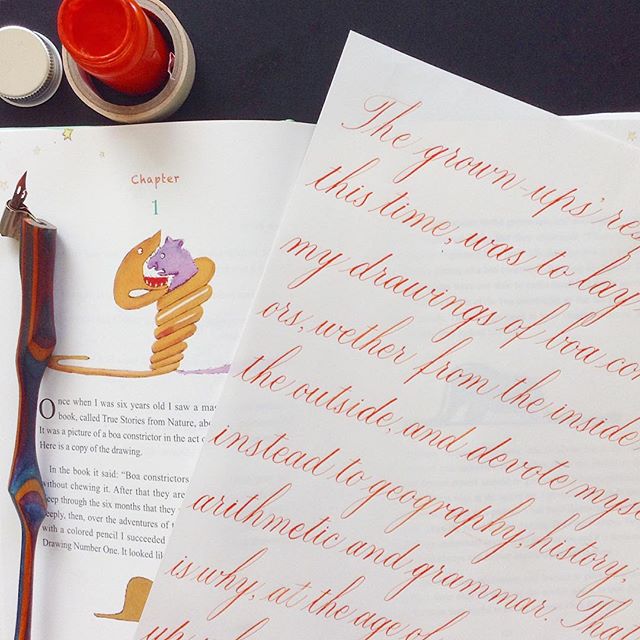 Chapter
1
Once when I was six years old I saw a mag
book, called True Stories from Nature, abo
It was a picture of a boa constrictor in the act o
Here is a copy of the drawing.
In the book it said: “Boa constrictors
without chewing it. After that they are
eep through the six months that they
eeply, then, over the adventures of
with a colored pencil I succeeded
Drawing Number One. It looked lik
The grown-ups' res
this time, was to lay
my drawings of boa con
ors, wether from the inside
the outside, and devote myse
instead to geography, history,
arithmetic and grammar. That
is why, at the age of